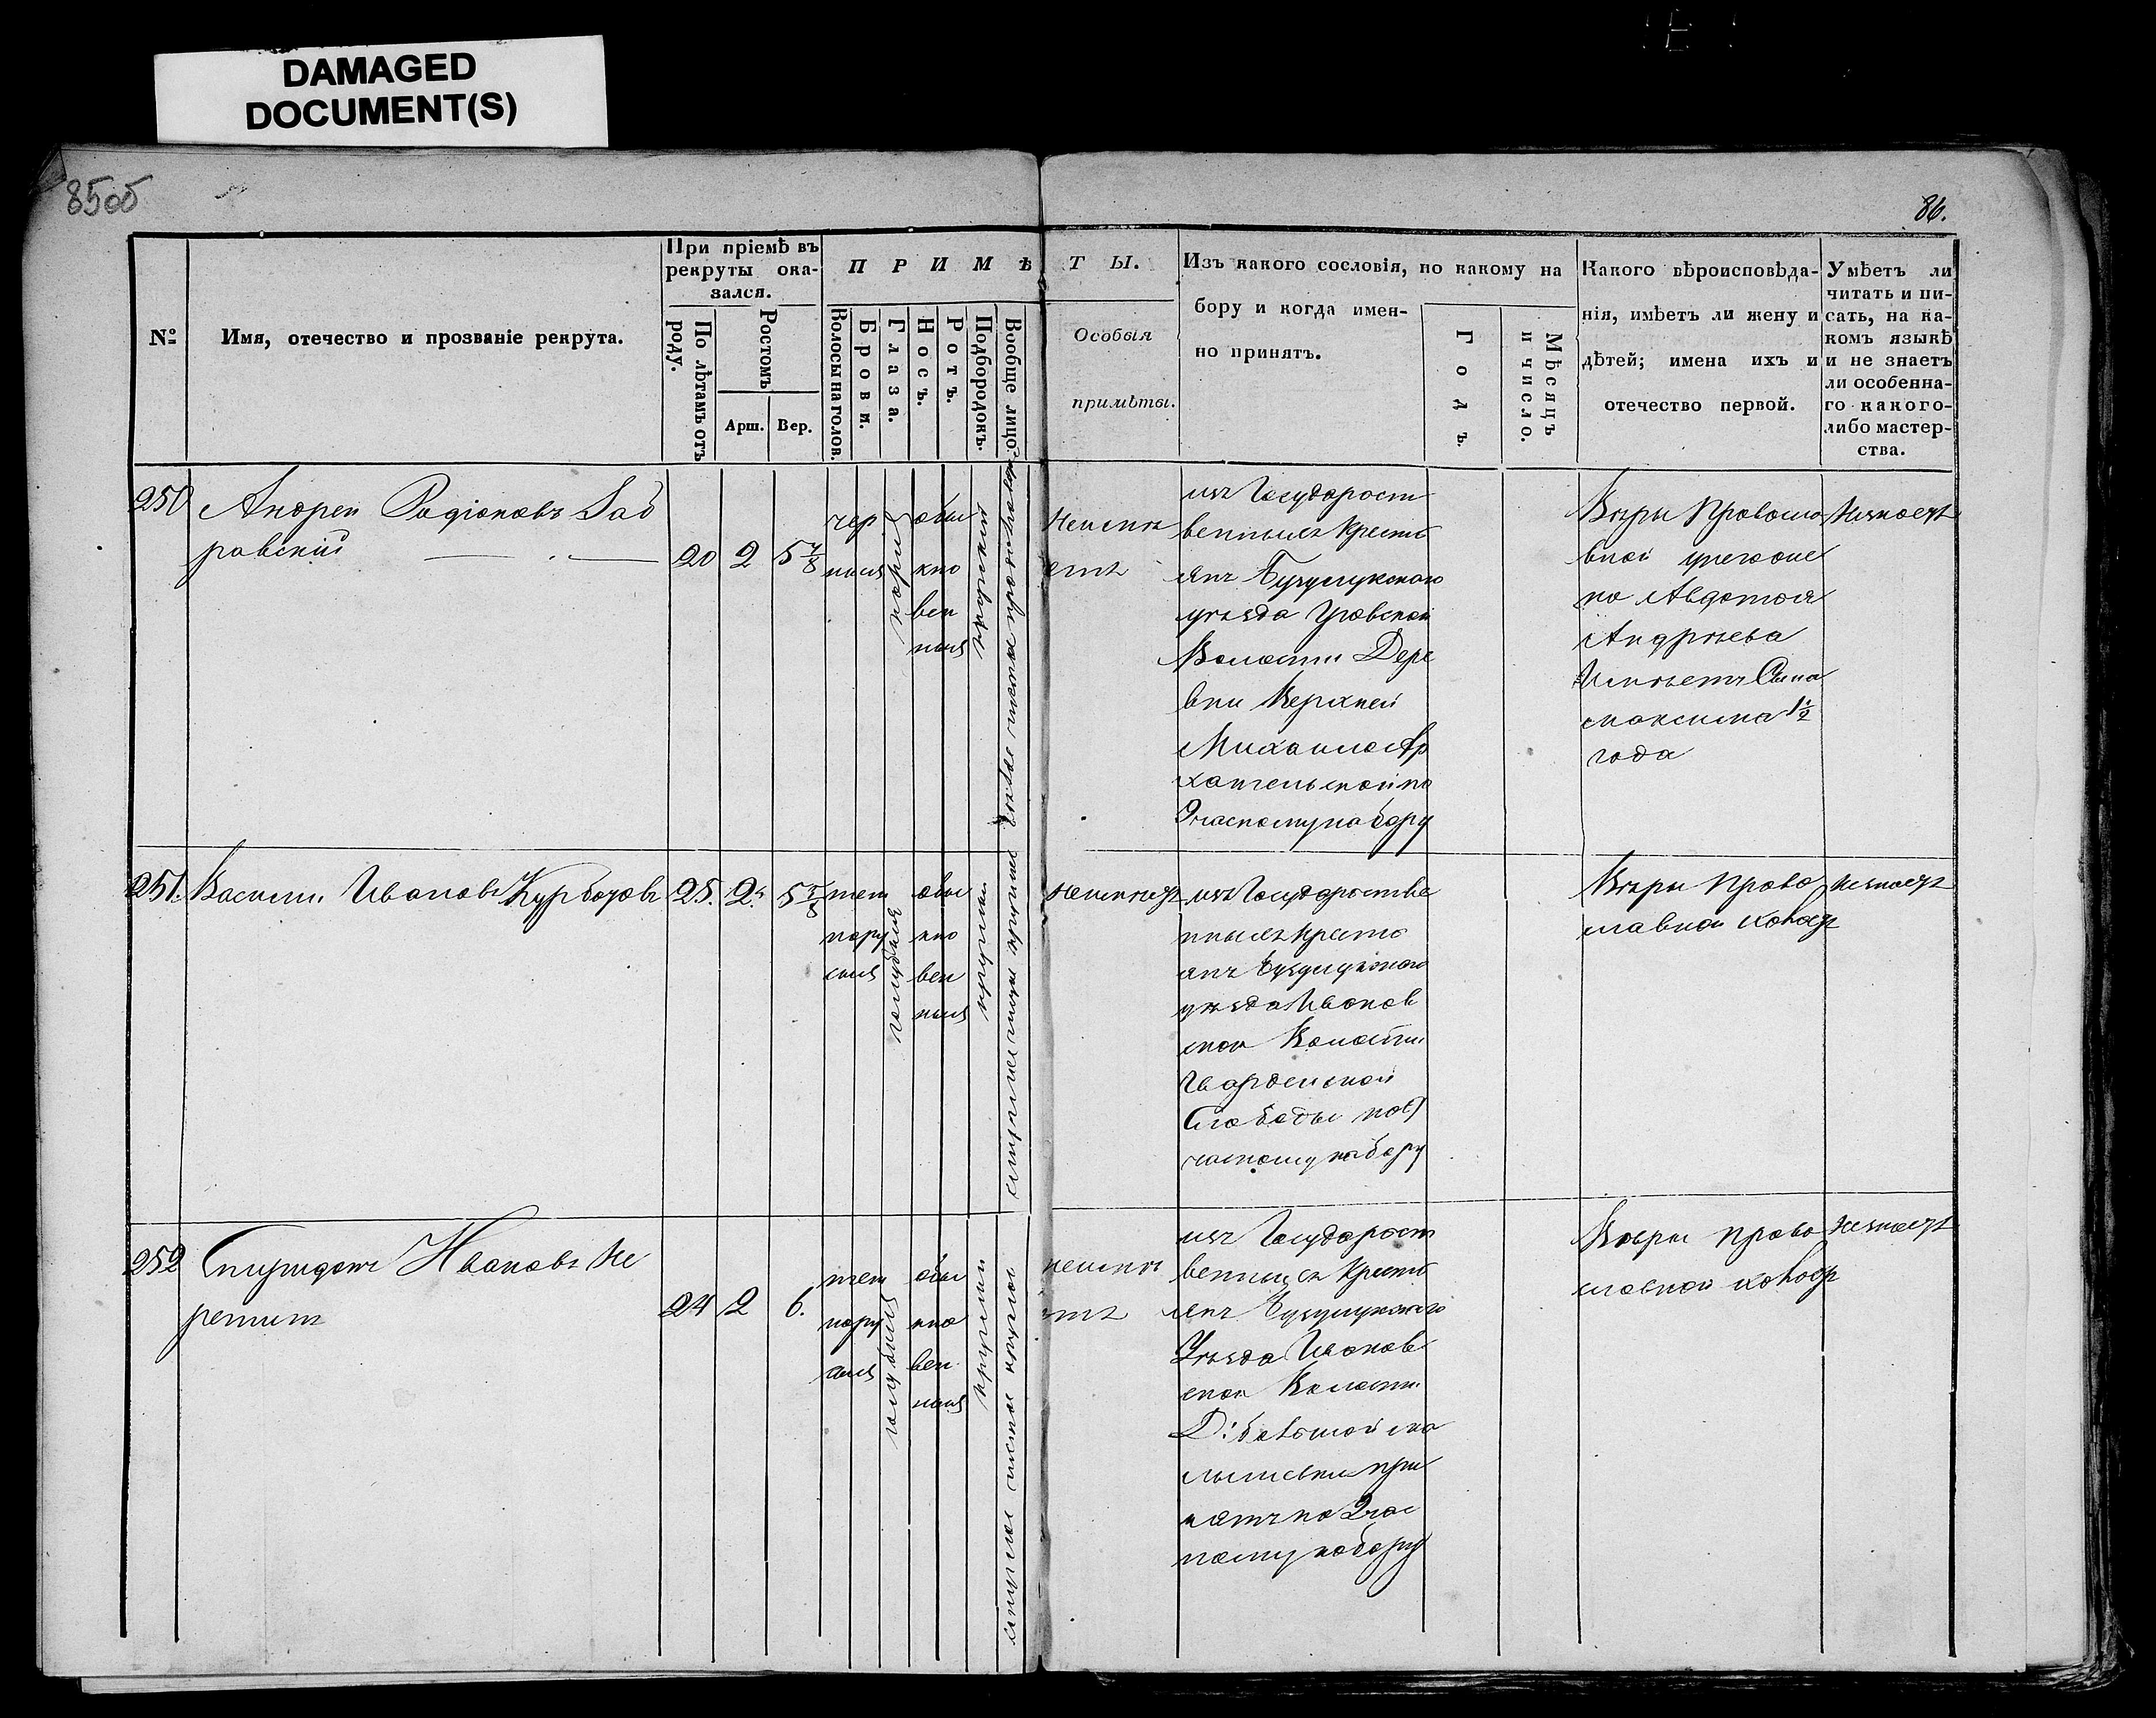 DAMAGED
DOCUMENT(S)
85об
86.
№
Имя, отечество и прозваніе рекрута.
При пріемѣ въ
рекруты ока-
зался.
По лѣтамъ отъ
роду.
Ростомъ
Арш.
Вер.
ПРИМѢ
ТЫ.
Волосы на голов.
Брови.
Глаза.
Носъ.
Ротъ.
Подбородокъ.
Вообще лицо.
Особыя
примѣты.
Изъ какого сословія, по какому на
бору и когда имен-
но принятъ.
Годъ.
Мѣсяцъ
и число.
Какого вѣроисповѣда-
нія, имѣетъ ли жену и
дѣтей; имена ихъ и
отечество первой.
Умѣетъ ли
читать и пи-
сать, на ка-
комъ языкѣ
и не знаетъ
ли особенна-
го какого-
либо мастер-
ства.
250
Андреи Радіоновъ
ровскій
20
2
5 7/8
чер
ныя
обы
кно
вен
ныя
Неимѣ
етъ
изъ Государст
венныхъ крестъ
янъ Бузулукского
уѣзда
Волости Дере
вни Верхней
Михаило Ар
хангельской по
9 часному набору
Вѣры Провосла
вной
но Авдотья
Андрѣева
Имѣетъ Сына
максима 1 1/2
года
Незноетъ
251.
Василии Ивановъ
25.
2.
5 5/8
тем
нору
сыя
голубыя
обы
кно
вен
ныя
круглыи
Неимѣетъ
изъ Государстве
нныхъ кресто
янъ Бузулукского
уѣзда Иванов
ской Волости
Гвардейской
Слободы по 9
часному набору
Вѣры Право
славной холостъ
незноетъ
252
Спиридонъ Ивановъ Не
ретин
24
2
6.
тем
нору
сыя
голубыя
обы
кно
вен
ныя
круглыи
неимѣ
етъ
изъ Государст
венныхъ крестъ
янъ Бузулукского
Уѣзда Иванов
ской Волости
при
нятъ по 9 час
ному набору
Вѣры право
славной холостъ
незноетъ